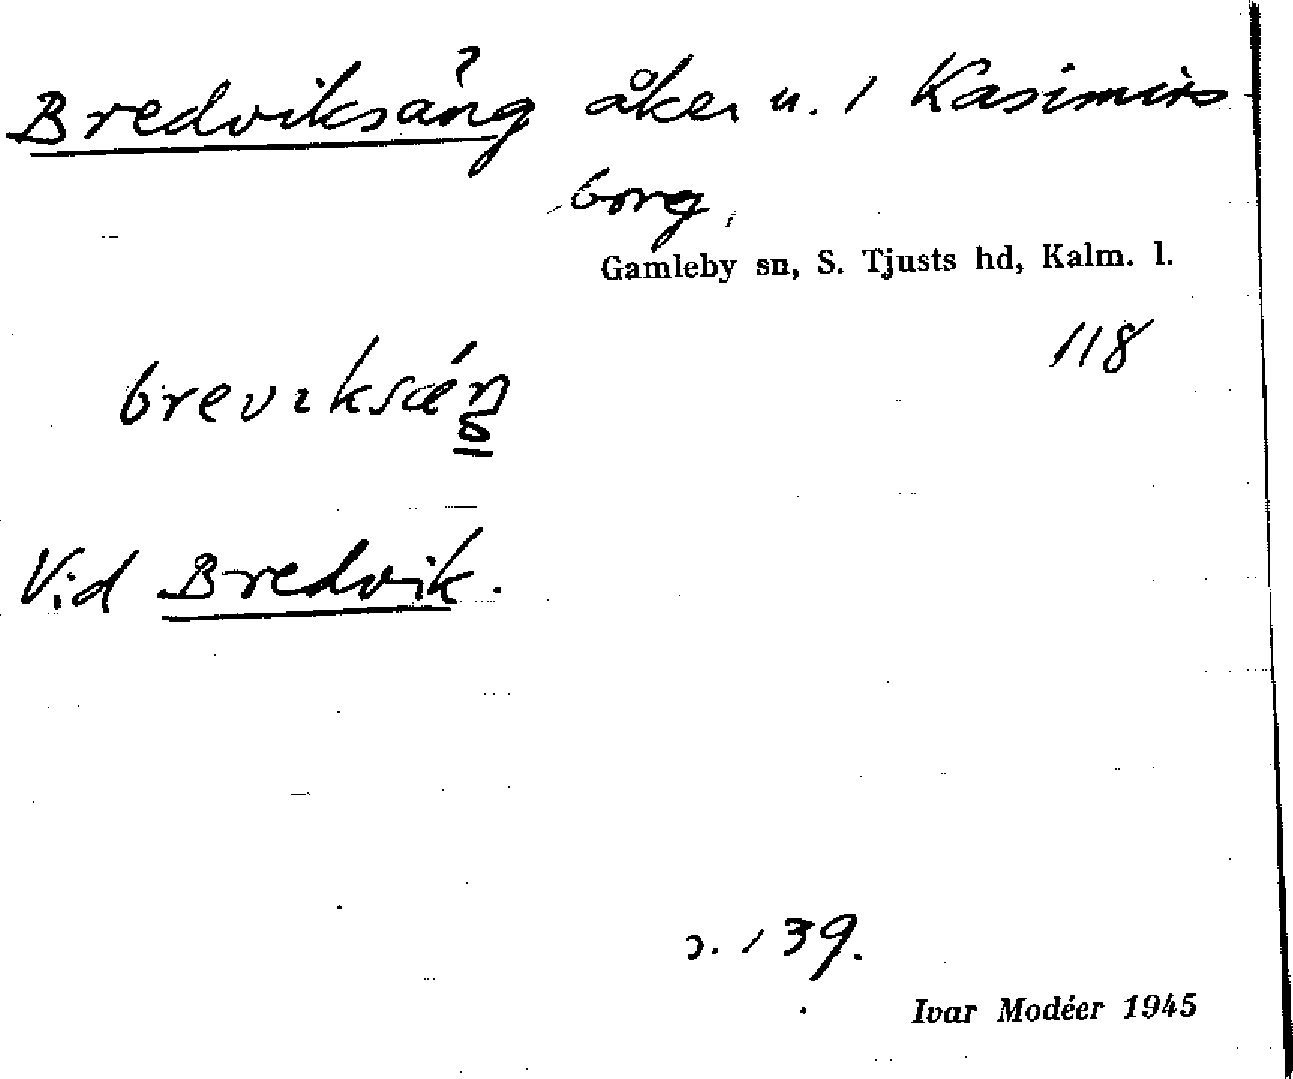 Bredviksäng åker u. 1 Kasimirs
borg,
Gamleby sn, S. Tjusts hd, Kalm. l.
118
Vid Bredvik.
s. 139.
Ivar Modéer 1945